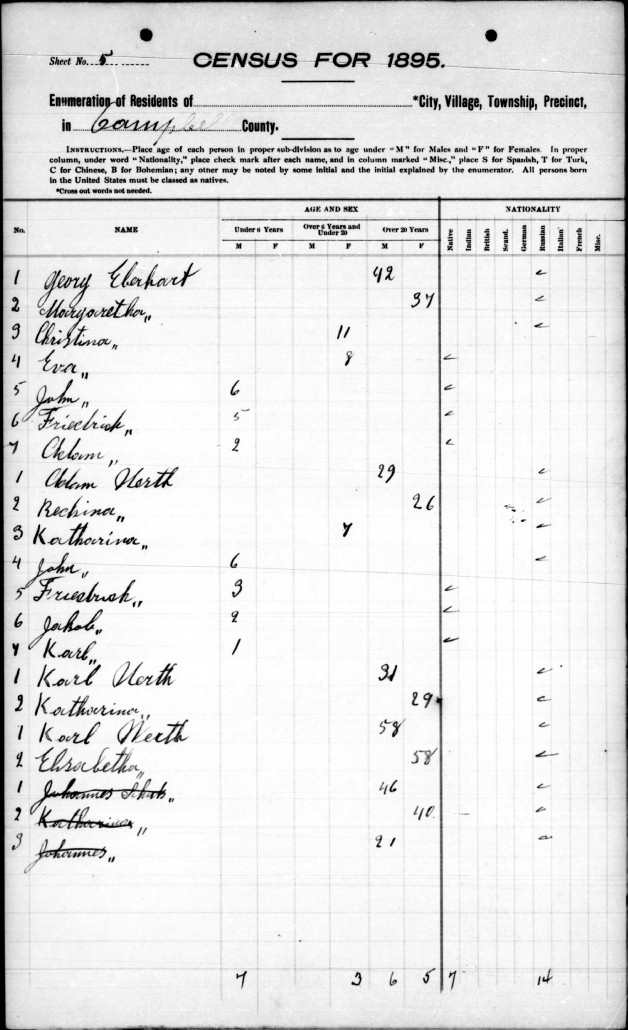 Sheet No. 5
CENSUS FOR 1895.
Enumeration of Residents of *City, Village, Township, Precinct,
in Campbell County.
INSTRUCTIONS.—Place age of each person in proper sub-division as to age under "M" for Males and "F" for Females. In proper
column, under word "Nationality," place check mark after each name, and in column marked "Misc.," place S for Spanish, T for Turk,
C for Chinese, B for Bohemian; any other may be noted by some initial and the initial explained by the enumerator. All persons born
in the United States must be classed as natives.
*Cross out words not needed.
AGE AND SEX NATIONALITY
No. NAME Under 6 Years Over 6 Years and Under 20 Over 20 Years Native Indian British Scand. German Russian Italian French Misc.
M F M F M F
1 Georg Eberhart 42 ✓
2 Margaretha „ 37 ✓
3 Christina „ 11 ✓
4 Eva „ 8 ✓
5 John „ 6 ✓
6 Friedrick „ 5 ✓
7 Adam „ 2 ✓
1 Adam Werth 29 ✓
2 Rechina „ 26 ✓
3 Katharina „ 7 ✓
4 John „ 6 ✓
5 Friedrick „ 3 ✓
6 Jakob „ 2 ✓
7 Karl „ 1 ✓
1 Karl Werth 31 ✓
2 Katharina „ 29 ✓
1 Karl Werth 58 ✓
2 Elisabetha „ 58 ✓
1 Johannes „ 46 ✓
2 Katharina „ 40 ✓
3 Johannes „ 21 ✓
7 3 6 5 7 14